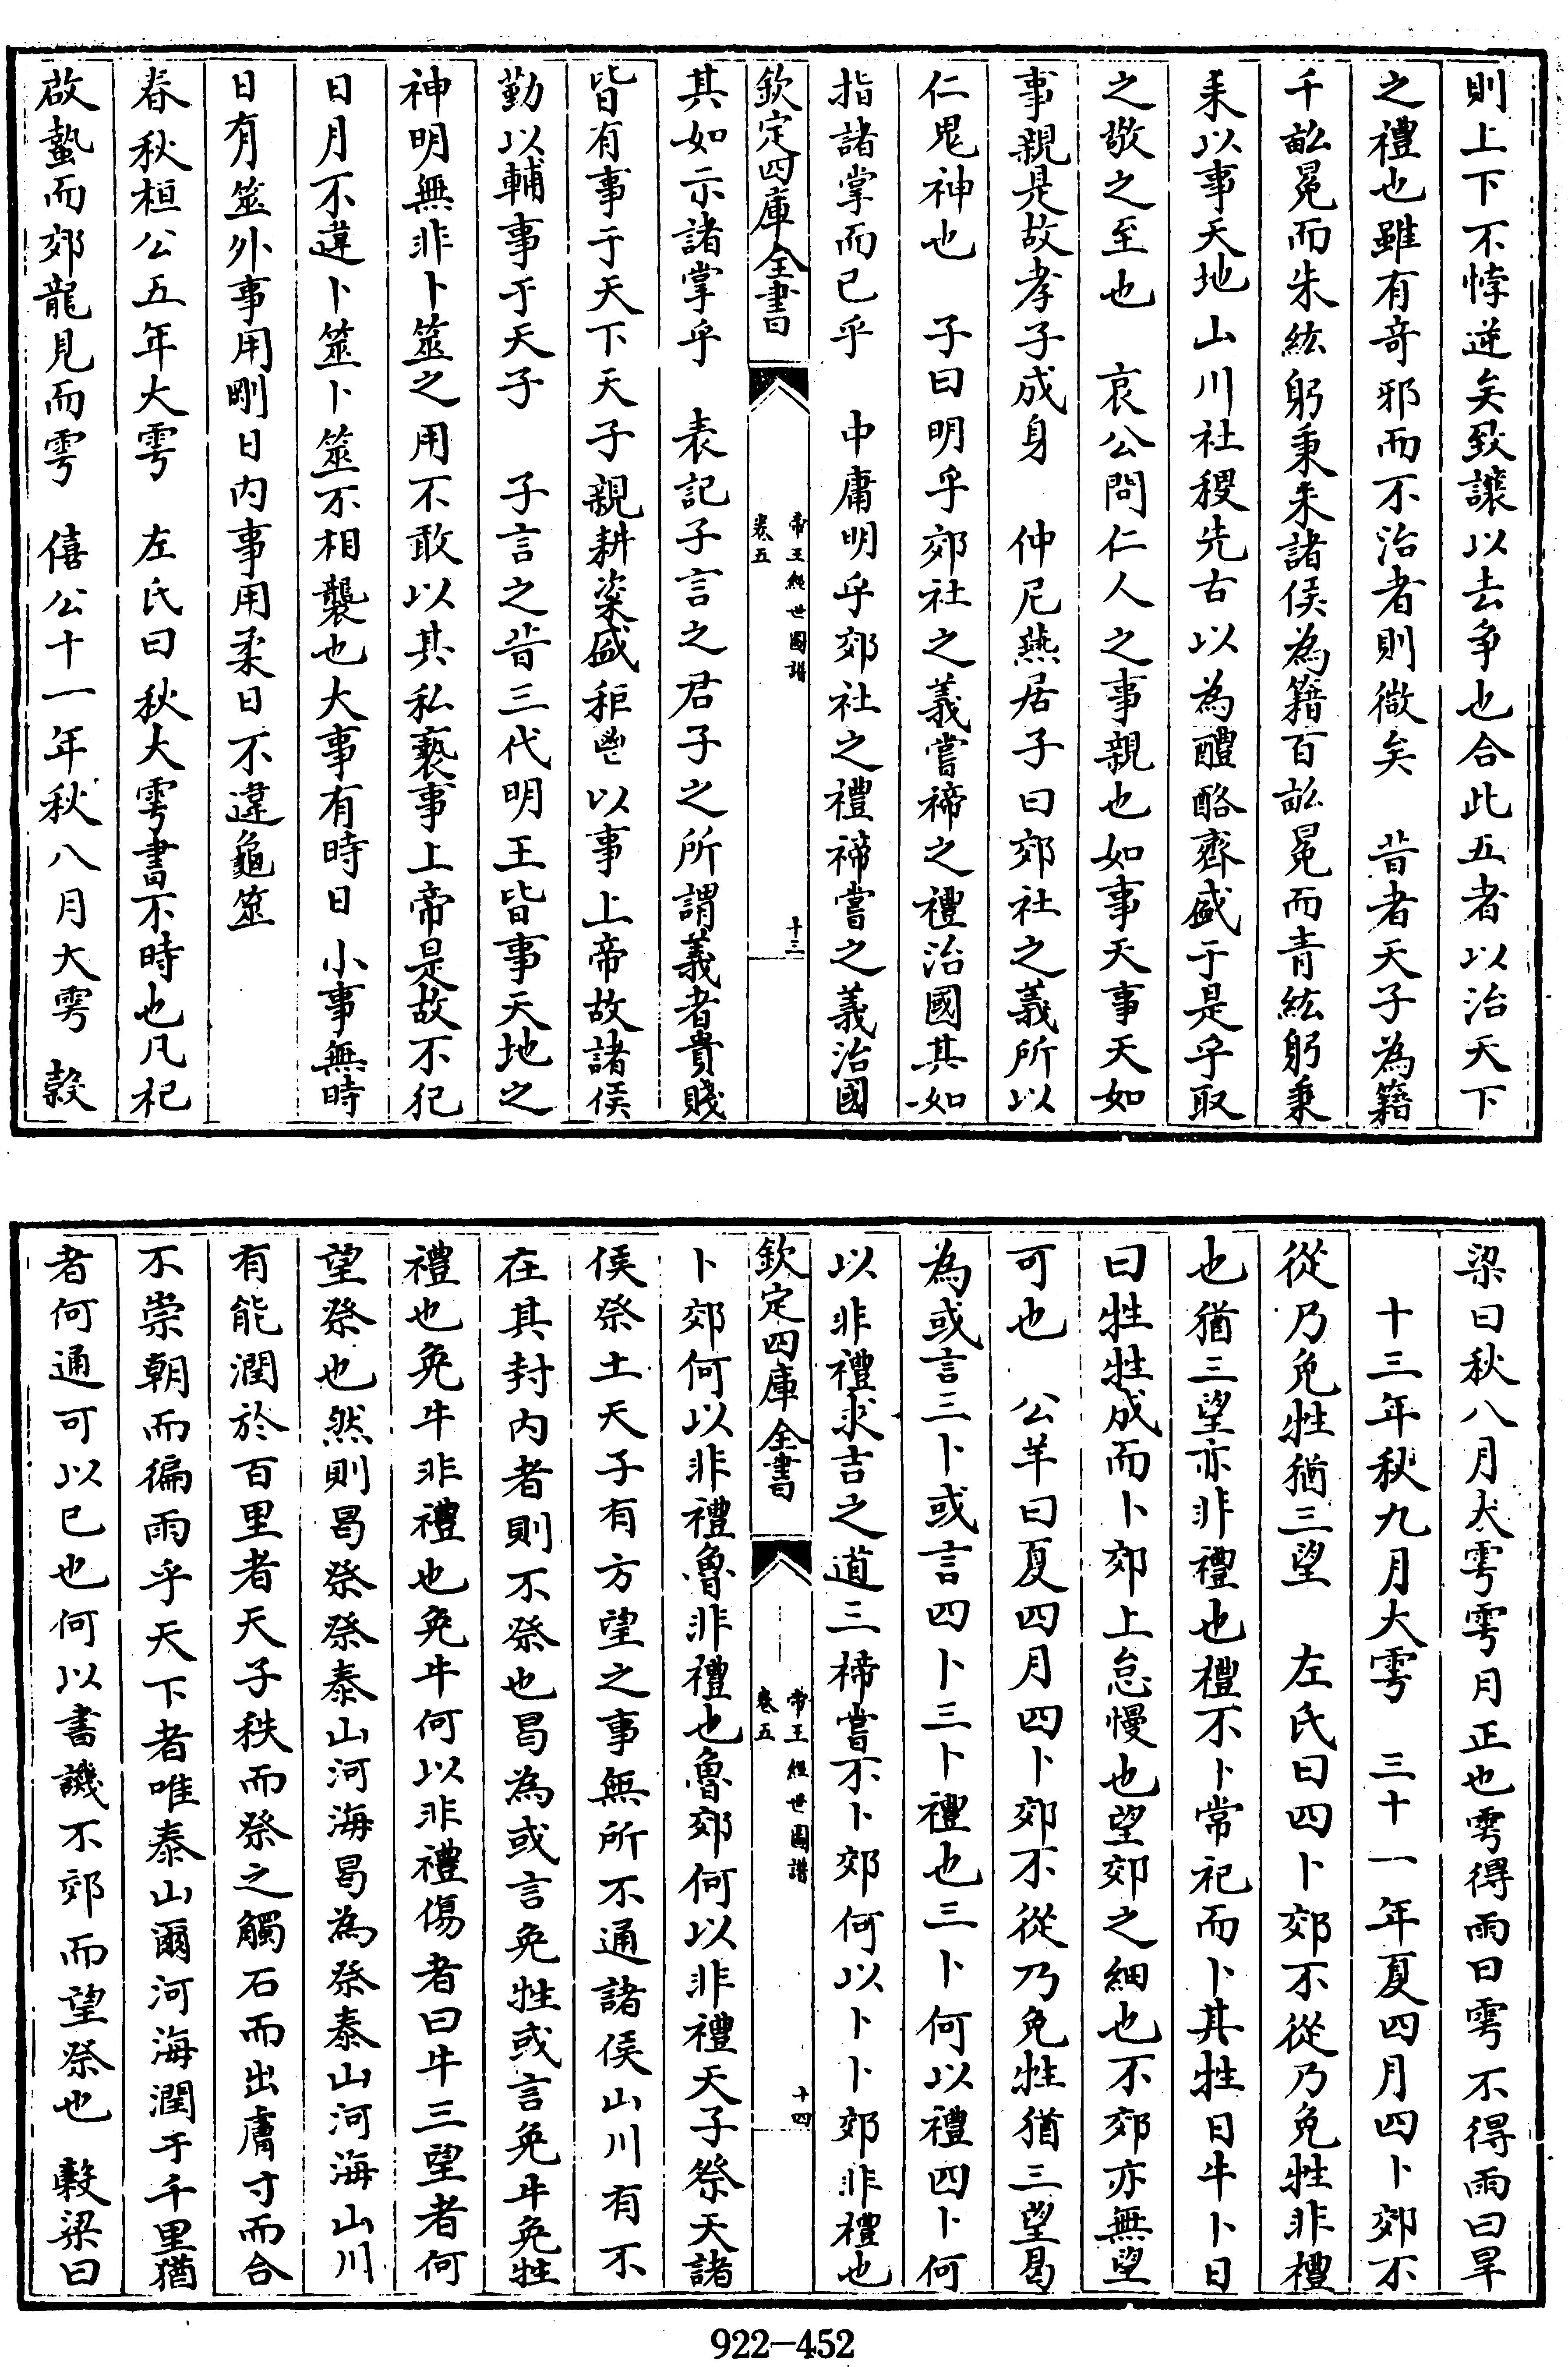 則上下不悖逆矣致讓以去爭也合此五者以治天下
之禮也雖有奇邪而不治者則微矣　昔者天子為籍
千畝冕而朱紘躬秉耒諸侯為籍百畝冕而青紘躬秉
耒以事天地山川社稷先古以為醴酪齊盛于是乎取
之敬之至也　哀公問仁人之事親也如事天事天如
事親是故孝子成身　仲尼燕居子曰郊社之義所以
仁鬼神也　子曰明乎郊社之義嘗禘之禮治國其如
指諸掌而已乎　中庸明乎郊社之禮禘嘗之義治國
欽定四庫全書　帝王經世圖譜　卷五　十三
其如示諸掌乎　表記子言之君子之所謂義者貴賤
皆有事于天下天子親耕粢盛秬鬯以事上帝故諸侯
勤以輔事于天子　子言之昔三代明王皆事天地之
神明無非卜筮之用不敢以其私褻事上帝是故不犯
日月不違卜筮卜筮不相襲也大事有時日小事無時
日有筮外事用剛日內事用柔日不違龜筮
春秋桓公五年大雩　左氏曰秋大雩書不時也凡祀
啟蟄而郊龍見而雩　僖公十一年秋八月大雩　穀
梁曰秋八月大雩雩月正也雩得雨曰雩不得雨曰旱
十三年秋九月大雩　三十一年夏四月四卜郊不
從乃免牲猶三望　左氏曰四卜郊不從乃免牲非禮
也猶三望亦非禮也禮不卜常祀而卜其牲日牛卜日
曰牲牲成而卜郊上怠慢也望郊之細也不郊亦無望
可也　公羊曰夏四月四卜郊不從乃免牲猶三望曷
為或言三卜或言四卜三卜禮也三卜何以禮四卜何
以非禮求吉之道三禘嘗不卜郊何以卜卜郊非禮也
欽定四庫全書　帝王經世圖譜　卷五　十四
卜郊何以非禮魯非禮也魯郊何以非禮天子祭天諸
侯祭土天子有方望之事無所不通諸侯山川有不
在其封內者則不祭也曷為或言免牲或言免牛免牲
禮也免牛非禮也免牛何以非禮傷者曰牛三望者何
望祭也然則曷祭祭泰山河海曷為祭泰山河海山川
有能潤於百里者天子秩而祭之觸石而出膚寸而合
不崇朝而徧雨乎天下者唯泰山爾河海潤于千里猶
者何通可以已也何以書譏不郊而望祭也　穀梁曰
922-452